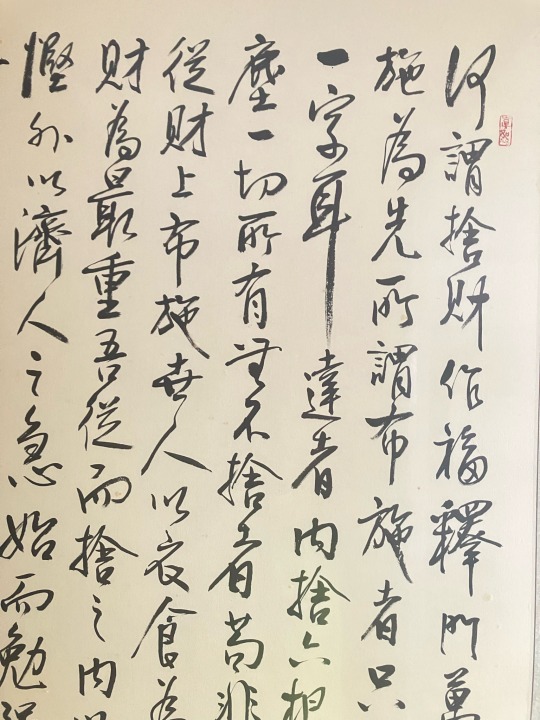 何謂捨財作福釋門萬
施為先所謂布施者只
一字耳達者內捨六根
塵一切所有無不捨者苟非
從財上布施世人以衣食為
財為最重吾從而捨之內以
慳外以濟人之急始而勉強